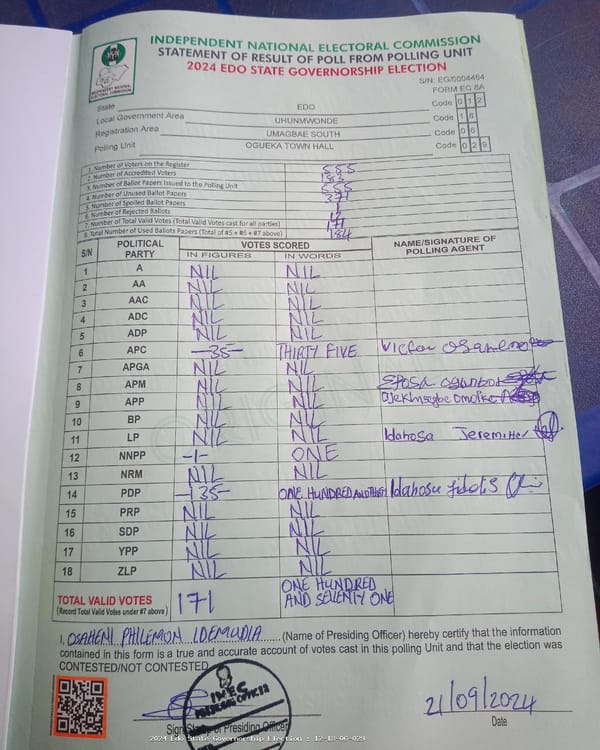 INDEPENDENT NATIONAL ELECTORAL COMMISSION
STATEMENT OF RESULT OF POLL FROM POLLING UNIT
2024 EDO STATE GOVERNORSHIP ELECTION
S/N: EG/0004464
FORM EC 8A
State EDO Code 0 1 2
Local Government Area UHUNMWONDE Code 1 8
Registration Area UMAGBAE SOUTH Code 0 6
Polling Unit OGUEKA TOWN HALL Code 0 2 9
1. Number of Voters on the Register 555
2. Number of Accredited Voters 183
3. Number of Ballot Papers Issued to the Polling Unit 555
4. Number of Unused Ballot Papers 371
5. Number of Spoiled Ballot Papers
6. Number of Rejected Ballots
7. Number of Total Valid Votes (Total Valid Votes cast for all parties) 171
8. Total Number of Used Ballots Papers (Total of #5 + #6 + #7 above) 184
S/N POLITICAL PARTY VOTES SCORED NAME/SIGNATURE OF POLLING AGENT
IN FIGURES IN WORDS
1 A NIL NIL
2 AA NIL NIL
3 AAC NIL NIL
4 ADC NIL NIL
5 ADP NIL NIL
6 APC -35- THIRTY FIVE Victor
7 APGA NIL NIL
8 APM NIL NIL
9 APP NIL NIL
10 BP NIL NIL
11 LP NIL NIL Idahosa
12 NNPP -1- ONE
13 NRM NIL NIL
14 PDP -135- ONE HUNDRED AND Idahosa
15 PRP NIL NIL
16 SDP NIL NIL
17 YPP NIL NIL
18 ZLP NIL NIL
TOTAL VALID VOTES 171 ONE HUNDRED AND SEVENTY ONE
(Record Total Valid Votes under #7 above)
I, OSAHENI PHILEMON IDEMUDIA (Name of Presiding Officer) hereby certify that the information
contained in this form is a true and accurate account of votes cast in this polling Unit and that the election was
CONTESTED/NOT CONTESTED
PRESIDING OFFICER
of Presiding Officer
21/09/2024
Date
2024 Edo State Governorship Election : 12-18-06-029